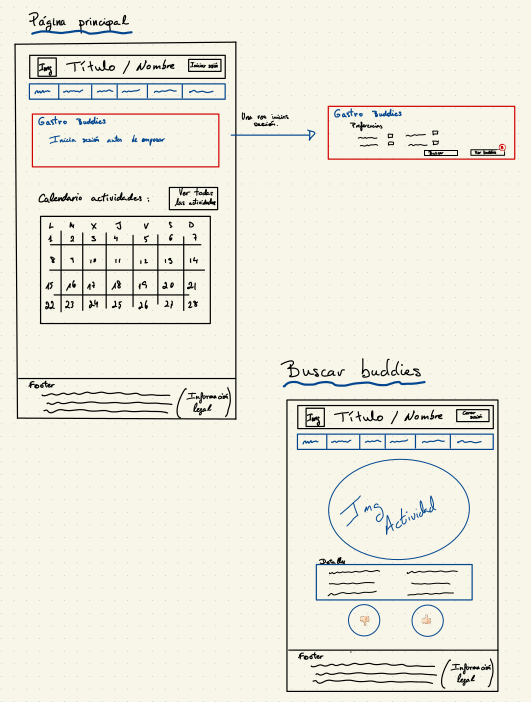 Página principal
Img
Título / Nombre
Iniciar sesión
Gastro Buddies
Inicia sesión antes de empezar
Una vez inicias
sesión.
Gastro Buddies
Preferencias
Buscar
Ver buddies
Calendario actividades:
Ver todas
las actividades
L M X J V S D
1 2 3 4 5 6 7
8 9 10 11 12 13 14
15 16 17 18 19 20 21
22 23 24 25 26 27 28
Footer
Información
legal
Buscar buddies
Img
Título / Nombre
Cerrar
sesión
Img
Actividad
Detalles
Footer
Información
legal